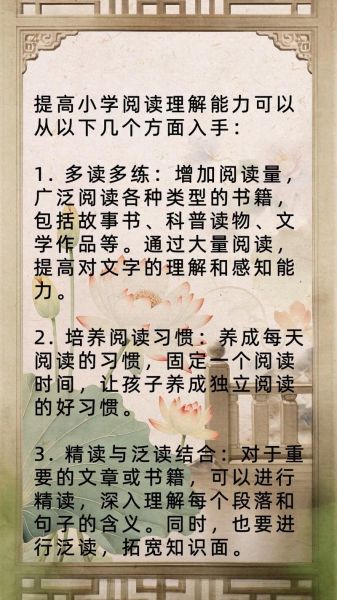 提高小学阅读理解能力可以
从以下几个方面入手：
1. 多读多练：增加阅读量，
广泛阅读各种类型的书籍，
包括故事书、科普读物、文
学作品等。通过大量阅读，
提高对文字的理解和感知能
力。
2. 培养阅读习惯：养成每天
阅读的习惯，固定一个阅读
时间，让孩子养成独立阅读
的好习惯。
3. 精读与泛读结合：对于重
要的文章或书籍，可以进行
精读，深入理解每个段落和
句子的含义。同时，也要进
行泛读，拓宽知识面。